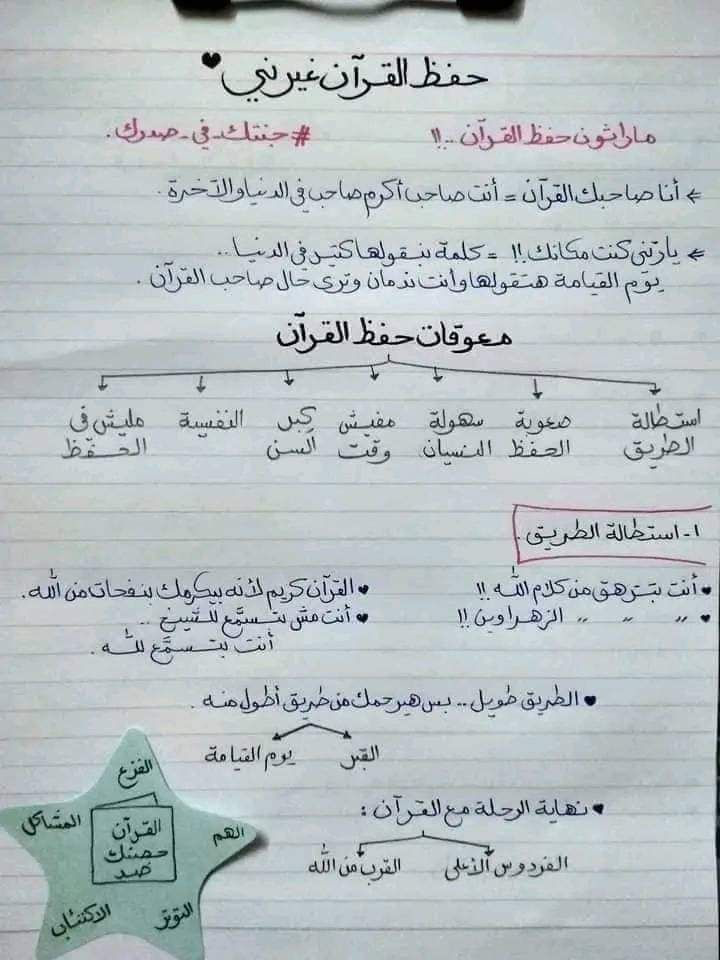 حفظ القرآن غيرني ♥
ماراثون حفظ القرآن ..!! #جنتك_في_صدرك.
← أنا صاحبك القرآن = أنت صاحب أكرم صاحب في الدنيا والآخرة.
← ياريتني كنت مكانك!! = كلمة بنقولها كتير في الدنيا..
يوم القيامة هتقولها وأنت ندمان وترى حال صاحب القرآن.
معوقات حفظ القرآن
استطالة الطريق
صعوبة الحفظ
سهولة النسيان
مفيش وقت
كبر السن
النفسية
مليش في الحفظ
١- استطالة الطريق.
♥ أنت بتزهق من كلام الله!!
♥ " " " الزهراوين!!
♥ القرآن كريم لأنه بيكرمك بنفحات من الله.
♥ أنت مش بتسمَّع للشيخ ..
أنت بتسمَّع لله.
♥ الطريق طويل.. بس هيرحمك من طريق أطول منه.
القبر
يوم القيامة
♥ نهاية الرحلة مع القرآن:
الفردوس الأعلى
القرب من الله
الفزع
المشاكل
الهم
القرآن
حصنك
ضد
التوتر
الاكتئاب